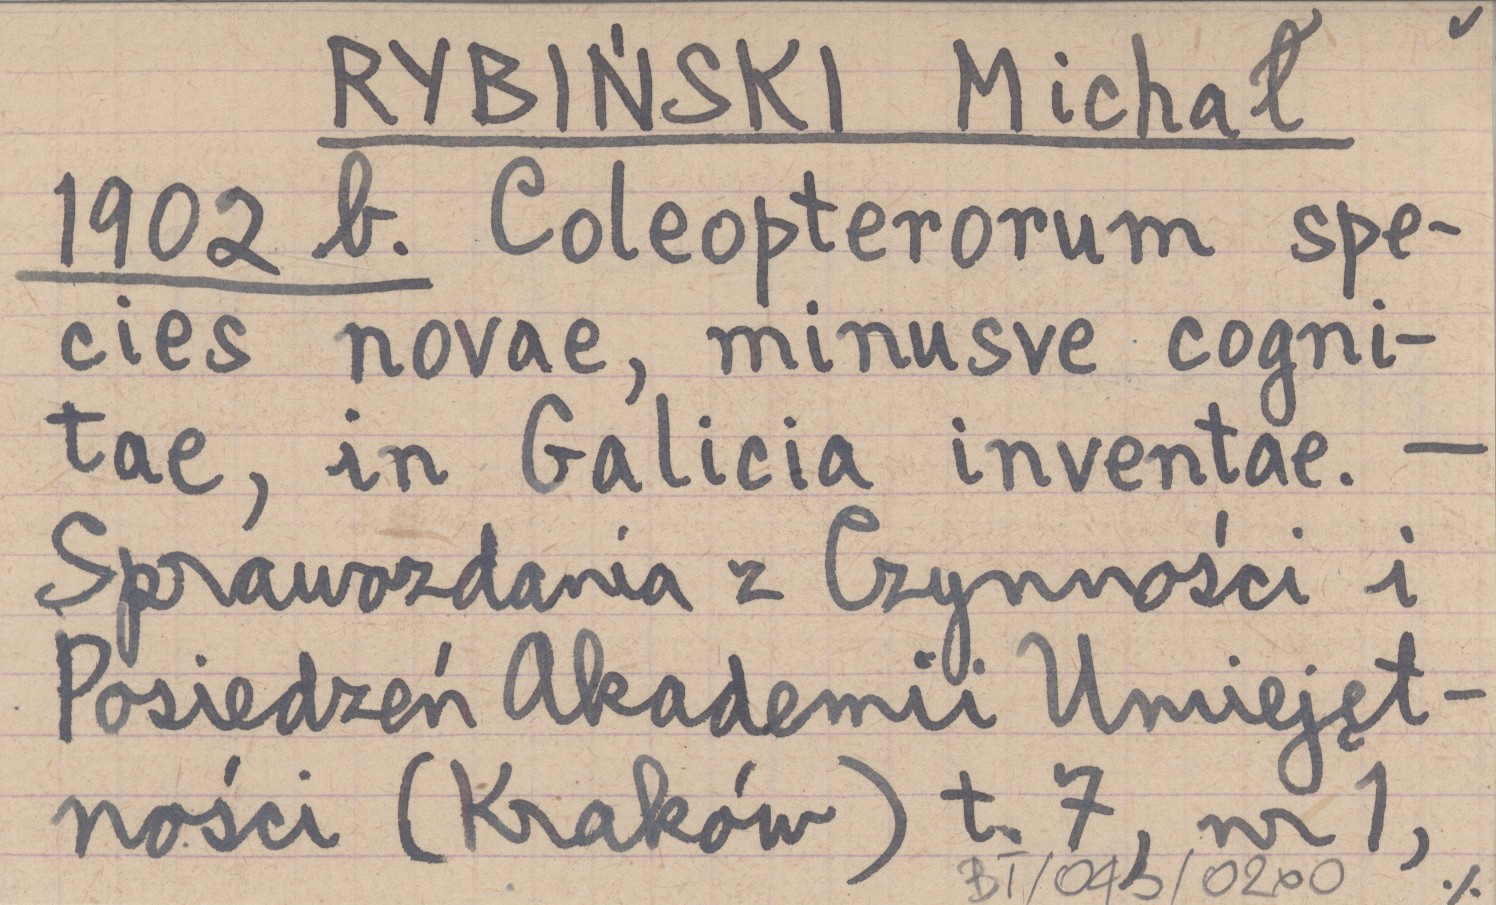 RYBIŃSKI Michał
1902 b. Coleopterorum spe-
cies novae, minusve cogni-
tae, in Galicia inventae. —
Sprawozdania z Czynności i
Posiedzeń Akademii Umiejęt-
ności (Kraków) t. 7, nr 1,
./.